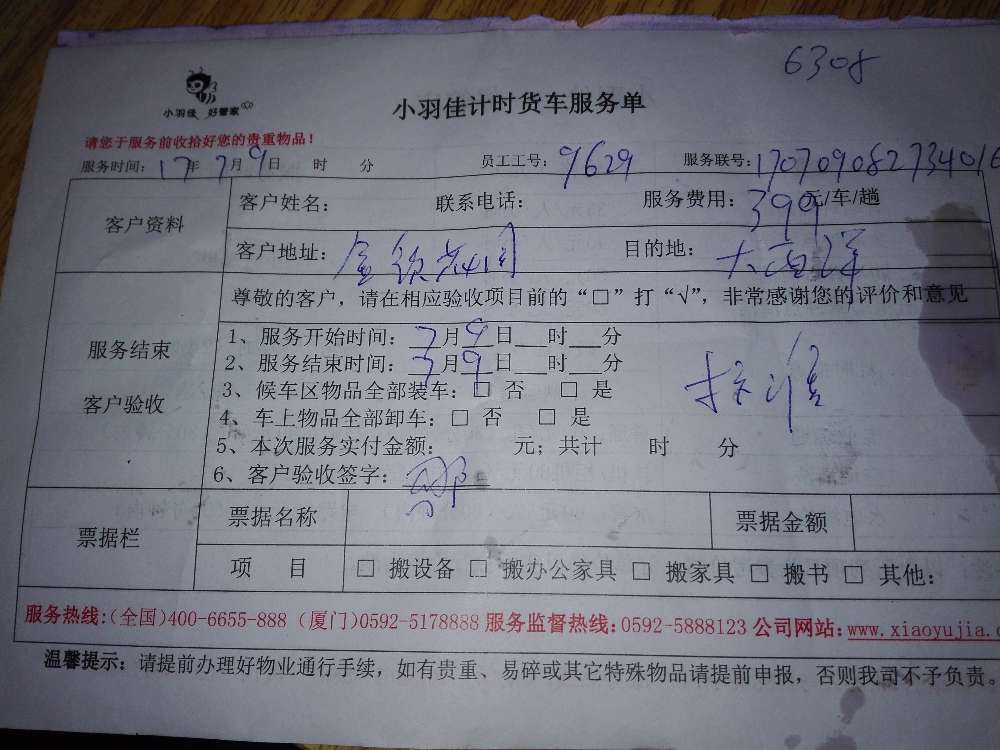 6308
小羽佳 好管家
小羽佳计时货车服务单
请您于服务前收拾好您的贵重物品！
服务时间：17年7月9日 时 分 员工工号：9629 服务联号：170709082734016
客户资料
客户姓名： 联系电话： 服务费用：399元/车/趟
客户地址： 目的地：大西洋
服务结束
客户验收
尊敬的客户，请在相应验收项目前的“□”打“√”，非常感谢您的评价和意见
1、服务开始时间：7月9日___时___分
2、服务结束时间：7月9日___时___分
3、候车区物品全部装车：□ 否 □ 是
4、车上物品全部卸车：□ 否 □ 是
5、本次服务实付金额： 元；共计 时 分
6、客户验收签字：
票据栏
票据名称 票据金额
项 目 □ 搬设备 □ 搬办公家具 □ 搬家具 □ 搬书 □ 其他：
服务热线:(全国)400-6655-888 (厦门)0592-5178888 服务监督热线：0592-5888123 公司网站：www.xiaoyujia.c
温馨提示：请提前办理好物业通行手续，如有贵重、易碎或其它特殊物品请提前申报，否则我司不予负责。